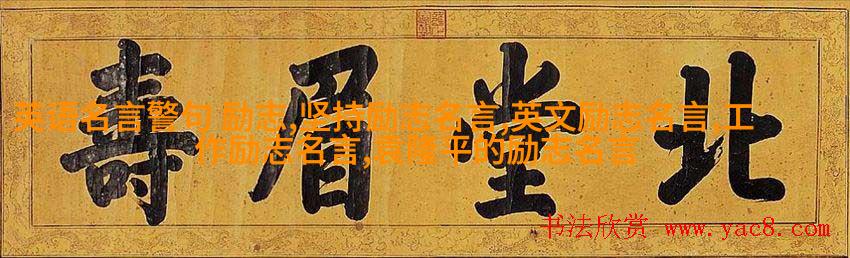 北堂眉壽
英语名言警句 励志,坚持励志名言,英文励志名言,工
作励志名言,袁隆平的励志名言
书法欣赏 www.yac8.com